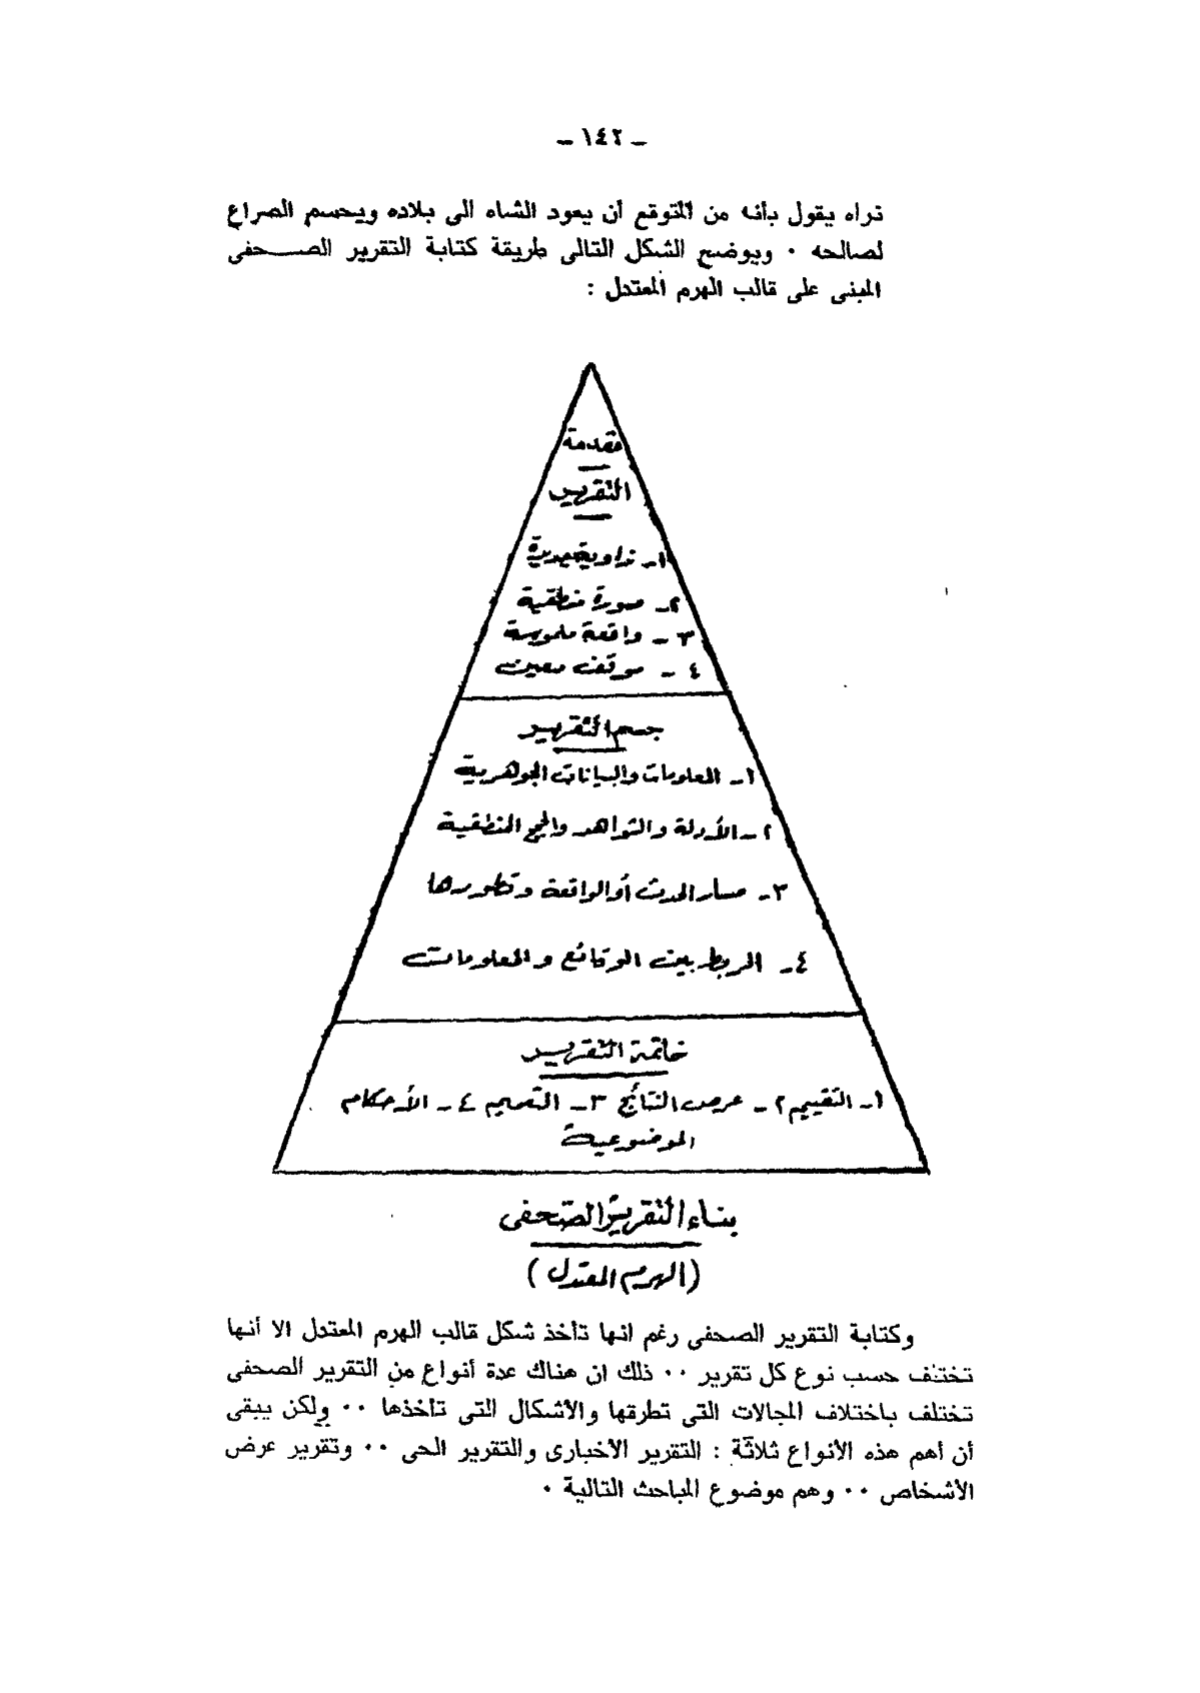 ـ ١٤٢ ـ
تراه يقول بأنه من المتوقع أن يعود الشاه الى بلاده ويحسم الصراع
لصالحه ٠ ويوضح الشكل التالى طريقة كتابة التقرير الصــحفى
المبنى على قالب الهرم المعتدل :
مقدمة
التقرير
١ـ زاوية جديدة
٢ـ صورة منطقية
٣ ـ واقعة ملموسة
٤ ـ موقف معين
جسم التقرير
١ـ المعلومات والبيانات الجوهرية
٢ـ الأدلة والشواهد والحجج المنطقية
٣ـ مسار الحدث أو الواقعة وتطورها
٤ـ الربط بين الوقائع والمعلومات
خاتمة التقرير
١ـ التقييم ٢ـ عرض النتائج ٣ـ التعميم ٤ـ الأحكام
الموضوعية
بناء التقرير الصحفى
(الهرم المعتدل)
وكتابة التقرير الصحفى رغم انها تأخذ شكل قالب الهرم المعتدل الا أنها
تختلف حسب نوع كل تقرير ٠٠ ذلك ان هناك عدة أنواع من التقرير الصحفى
تختلف باختلاف المجالات التى تطرقها والأشكال التى تأخذها ٠٠ ولكن يبقى
أن أهم هذه الأنواع ثلاثة : التقرير الاخبارى والتقرير الحى ٠٠ وتقرير عرض
الأشخاص ٠٠ وهم موضوع المباحث التالية ٠